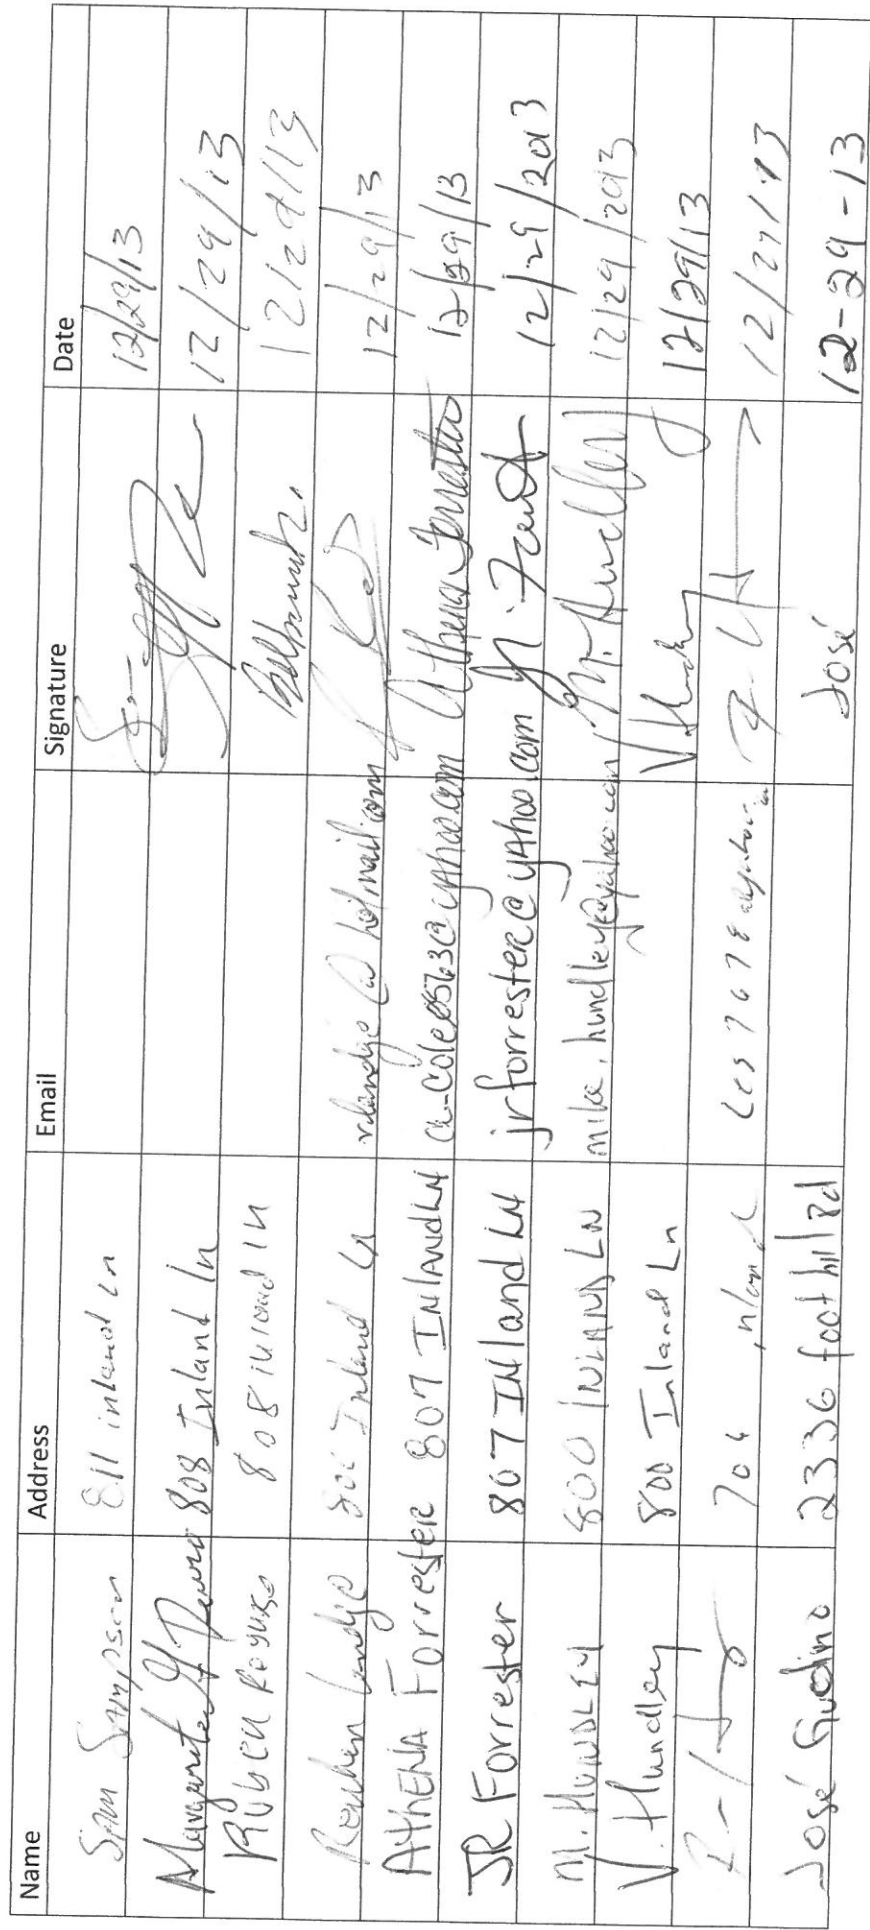 Name Address Email Signature Date
SAM SAMPSON 811 inland Ln 12/29/13
Margarita 808 Inland ln 12/29/13
Ruben 808 inland ln 12/29/13
Reuben Landge Inland Ln @hotmail.com 12/29/13
AthENA Forrester 807 INlANd LN @yahoo.com Athena Forrester 12/29/13
JR Forrester 807 INland LN jrforrester@yahoo.com 12/29/2013
M. HUNDLEY 800 INLAND LN mike.hundley@yahoo.com M. Hundley 12/29/2013
V. Hundley 800 Inland Ln V. Hundley 12/29/13
704 12/29/13
José Gudino 2336 foothill Rd José 12-29-13